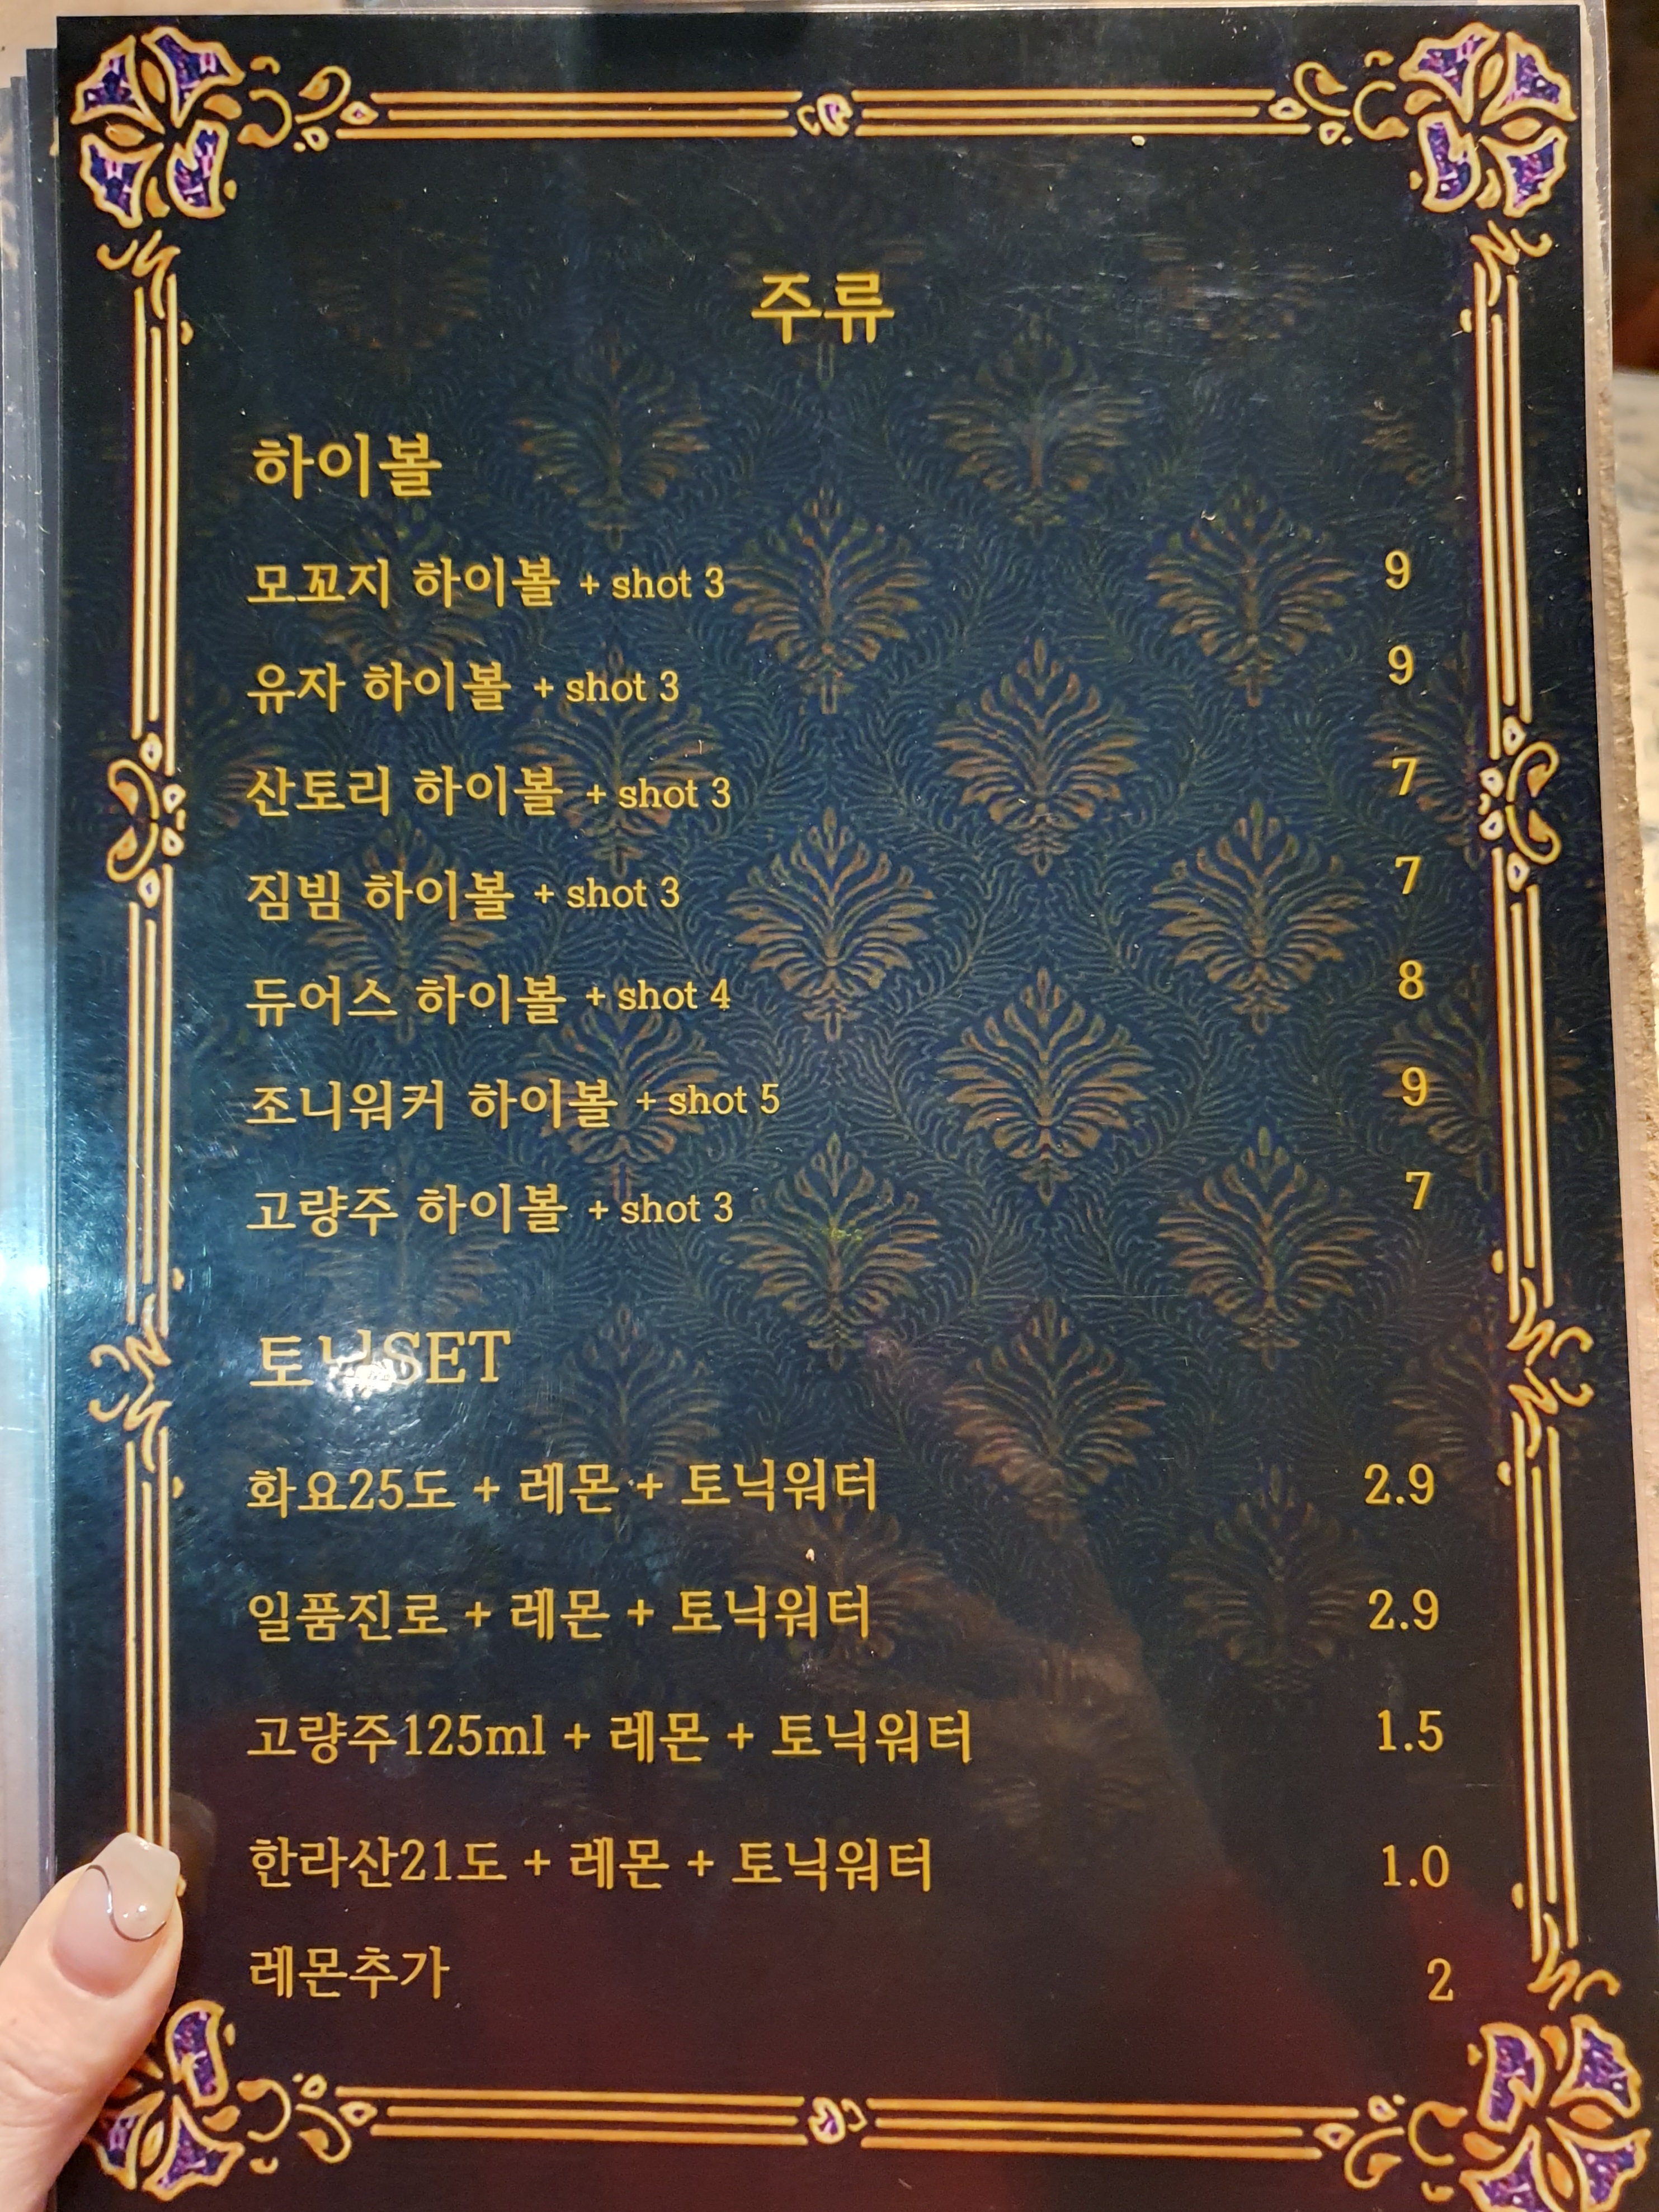 주류
하이볼
모꼬지 하이볼 + shot 3 9
유자 하이볼 + shot 3 9
산토리 하이볼 + shot 3 7
짐빔 하이볼 + shot 3 7
듀어스 하이볼 + shot 4 8
조니워커 하이볼 + shot 5 9
고량주 하이볼 + shot 3 7
토닉SET
화요25도 + 레몬 + 토닉워터 2.9
일품진로 + 레몬 + 토닉워터 2.9
고량주125ml + 레몬 + 토닉워터 1.5
한라산21도 + 레몬 + 토닉워터 1.0
레몬추가 2